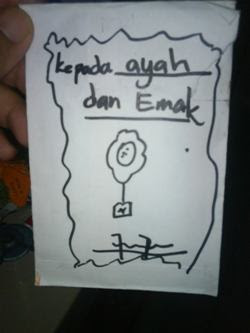 kepada ayah
dan Emak